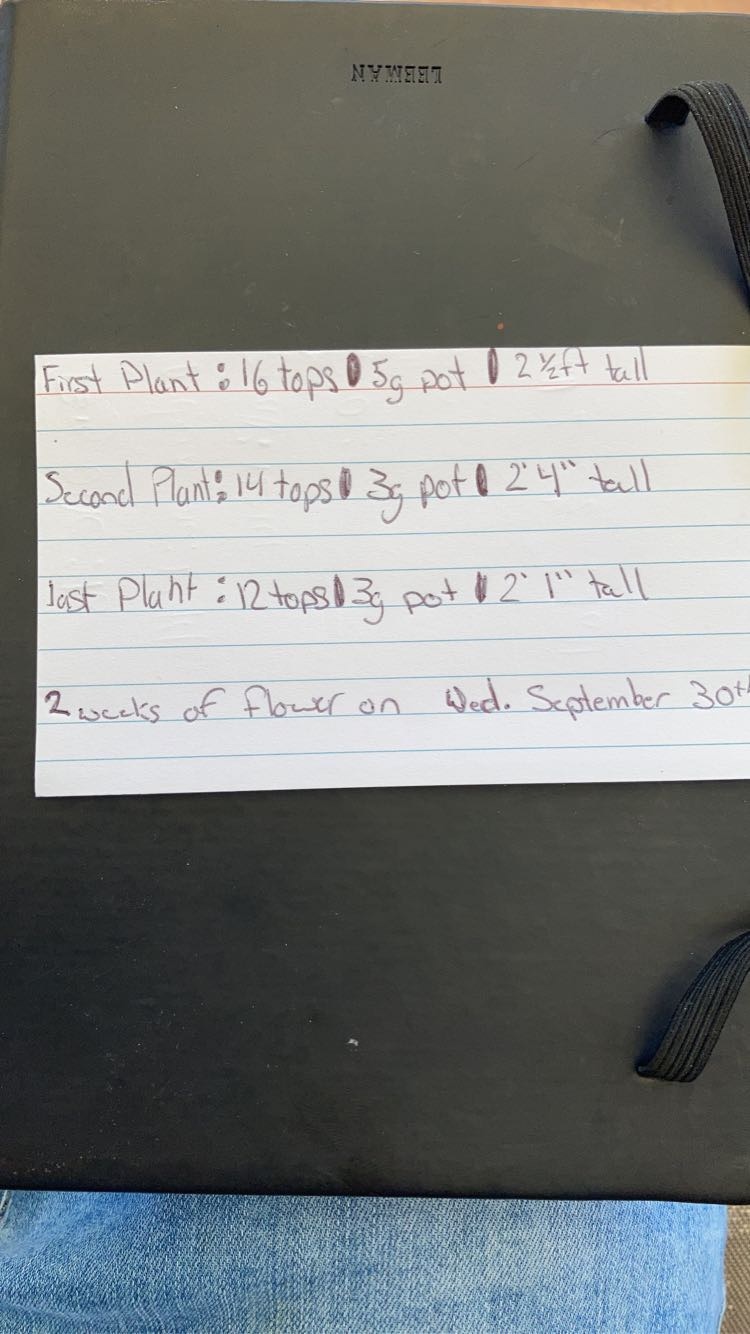 LEEMAN
First Plant : 16 tops 5g pot 2 ½ft tall
Second Plant: 14 tops 3g pot 2' 4" tall
last Plant : 12 tops 3g pot 2' 1" tall
2 weeks of flower on Wed. September 30th